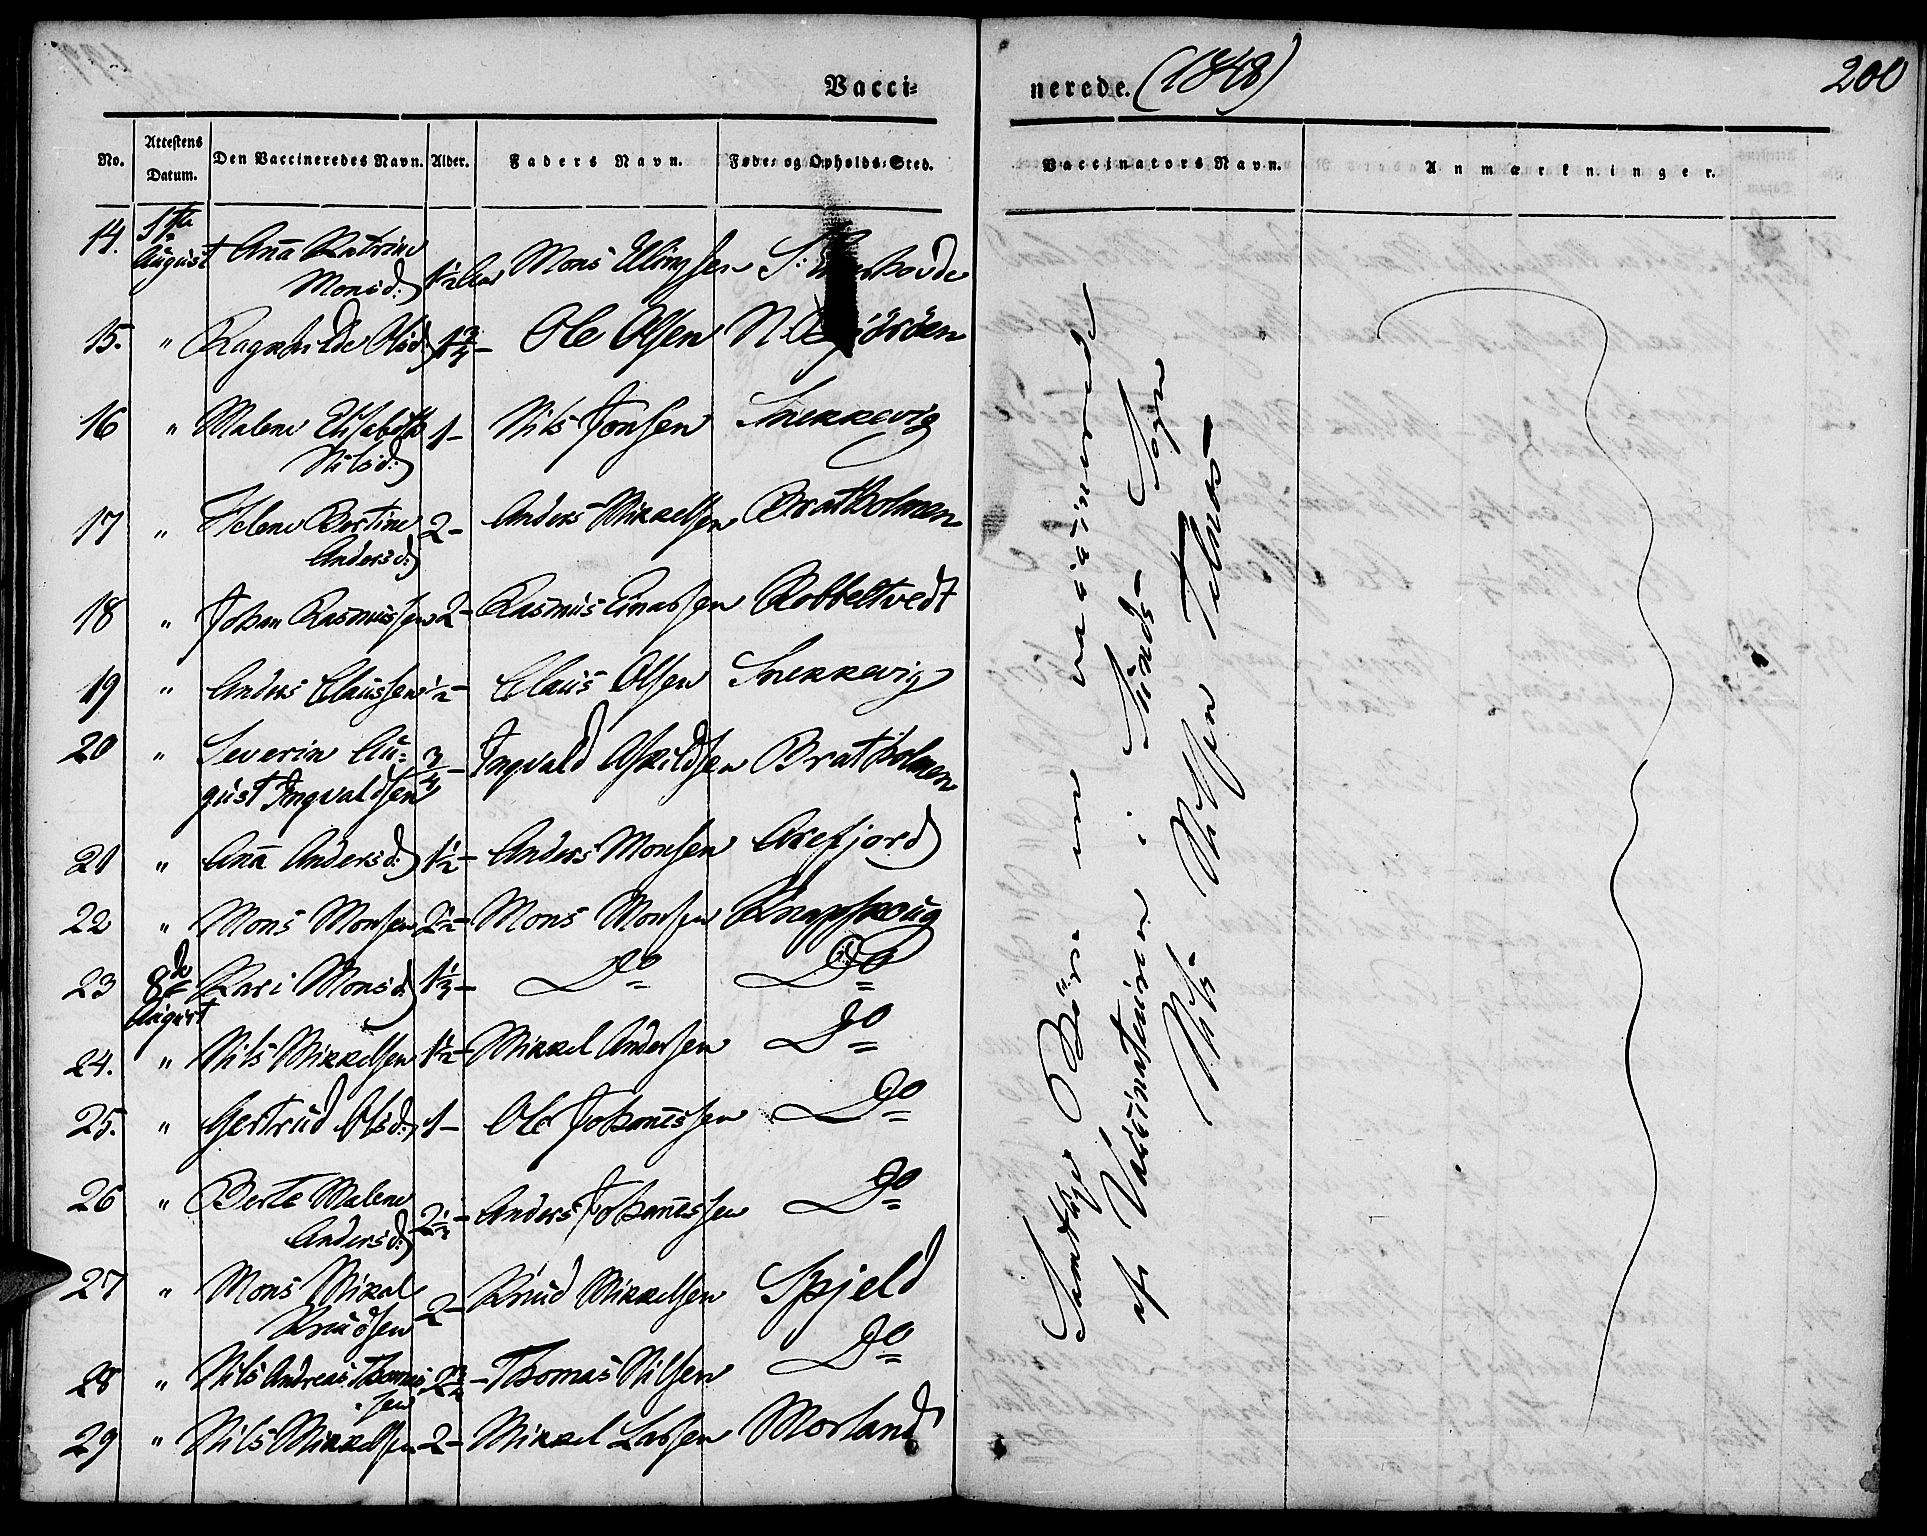 Vacci-
nerede. (1848)
200
No. Attestens Datum. Den Vaccineredes Navn. Alder. Faders Navn. Føde- og Opholds-Sted. Vaccinators Navn. Anmærkninger.
14. 1ste August Ana Katrine Monsd: 1½ Aar Mons Ellingsen S:
15. " Ragnhilde Olsd: 1¾ - Ole Olsen N.
16 " Malene Elisabeth Nilsd: 1 - Nils Jonsen Snekkevig
17 " Helene Bertine Andersd: 2 - Anders Mikkelsen Bratholmen
18 " Johan Rasmussen 2 - Rasmus Einassen Kobbeltvedt
19 " Anders Claussen ½ - Claus Olsen Snekkevig
20 " Severin Au-
gust Ingvaldsen ¾ - Ingvald Askildsen Bratholmen
21 " Ana Andersd: 1½ - Anders Monsen Arefjord
22 " Mons Monsen 2½ - Mons Monsen Knapskoug
23 8de August Kari Monsd: 1⅓ - Do Do
24. " Nils Mikkelsen 1½ - Mikkel Andersen Do
25. " Gertrud Olsd: 1 - Ole Johanessen Do
26 " Berte Malene Andersd: 2½ - Anders Johanessen Do
27 " Mons Mikal Knudsen 2 - Knud Mikkelsen Spjeld
28 " Nils Andreas Thomas-
sen 2¾ - Thomas Nilsen Do
29 " Nils Mikkelsen 2 - Mikkel Lassen Morland
Samtlige Börn ere vaccinerede
af Vaccinateuren i Sunds- Sogn
Nils Nilsen Telnæs -